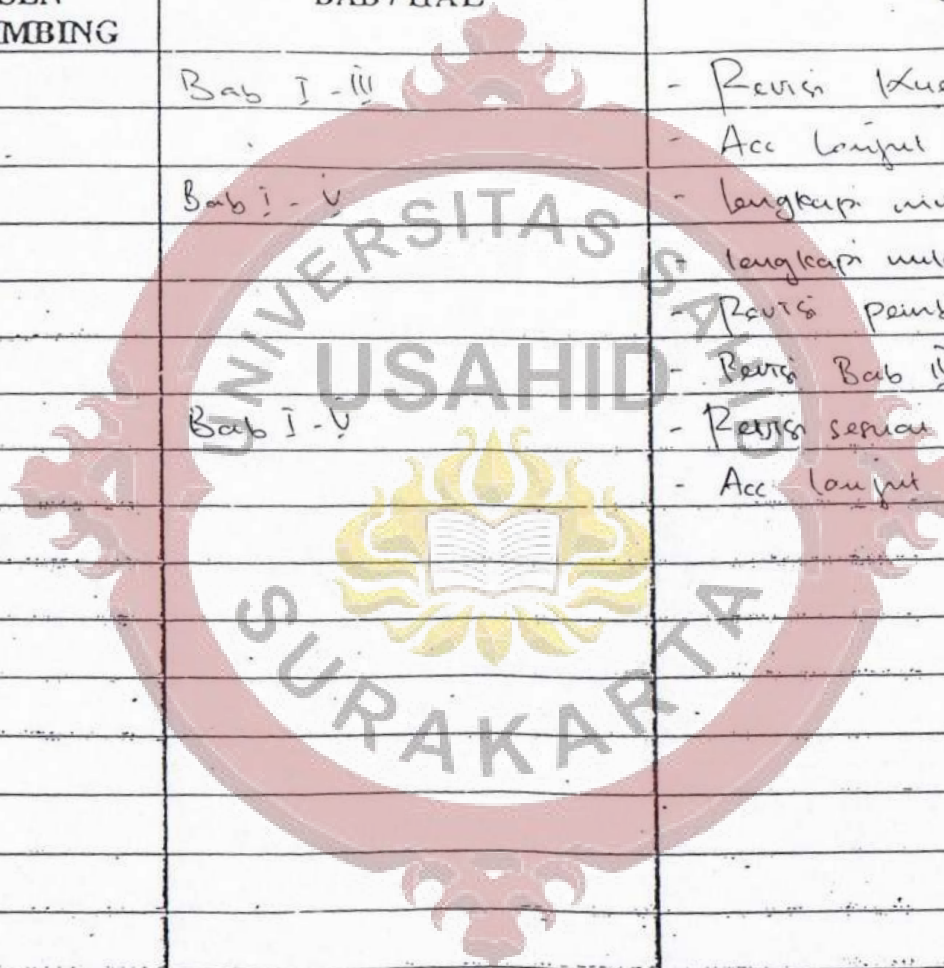 MBING
BAB / HAL
Bab I - III - Revisi
- Acc lanjut
Bab I - V - lengkapi
- lengkapi
- Revisi
- Revisi Bab
Bab I - V - Revisi sesuai
- Acc lanjut
UNIVERSITAS SAHID
USAHID
SURAKARTA